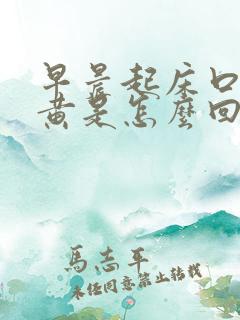 早晨起床口
黄是怎麼回
馬志平
未经同意禁止转载